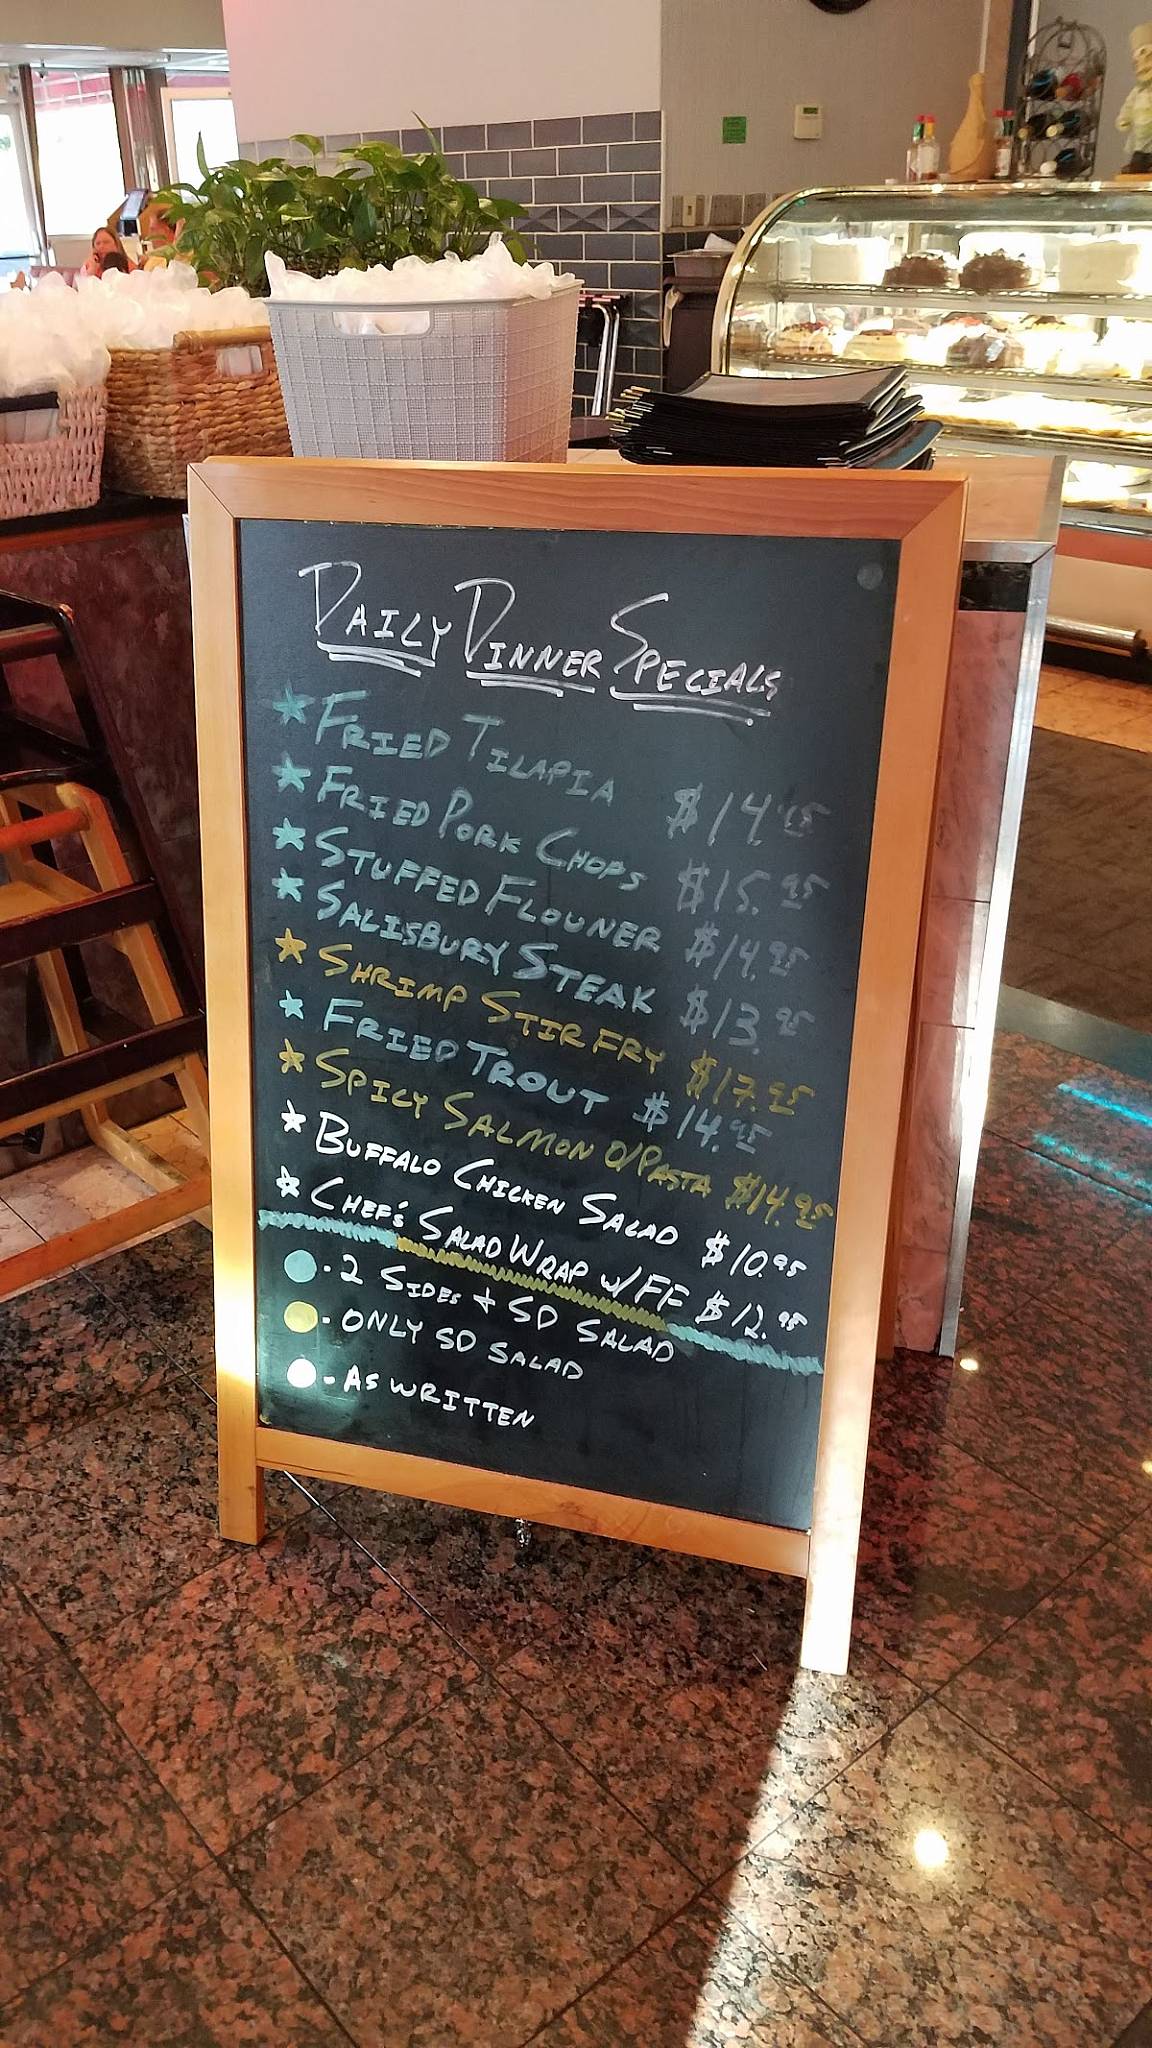 DAILY DINNER SPECIALS
★ FRIED TILAPIA $14.95
★ FRIED PORK CHOPS $15.95
★ STUFFED FLOUNER $14.95
★ SALISBURY STEAK $13.95
★ SHRIMP STIR FRY $17.95
★ FRIED TROUT $14.95
★ SPICY SALMON O/PASTA $14.95
★ BUFFALO CHICKEN SALAD $10.95
★ CHEF'S SALAD WRAP W/FF $12.95
- 2 SIDES + SD SALAD
- ONLY SD SALAD
- AS WRITTEN